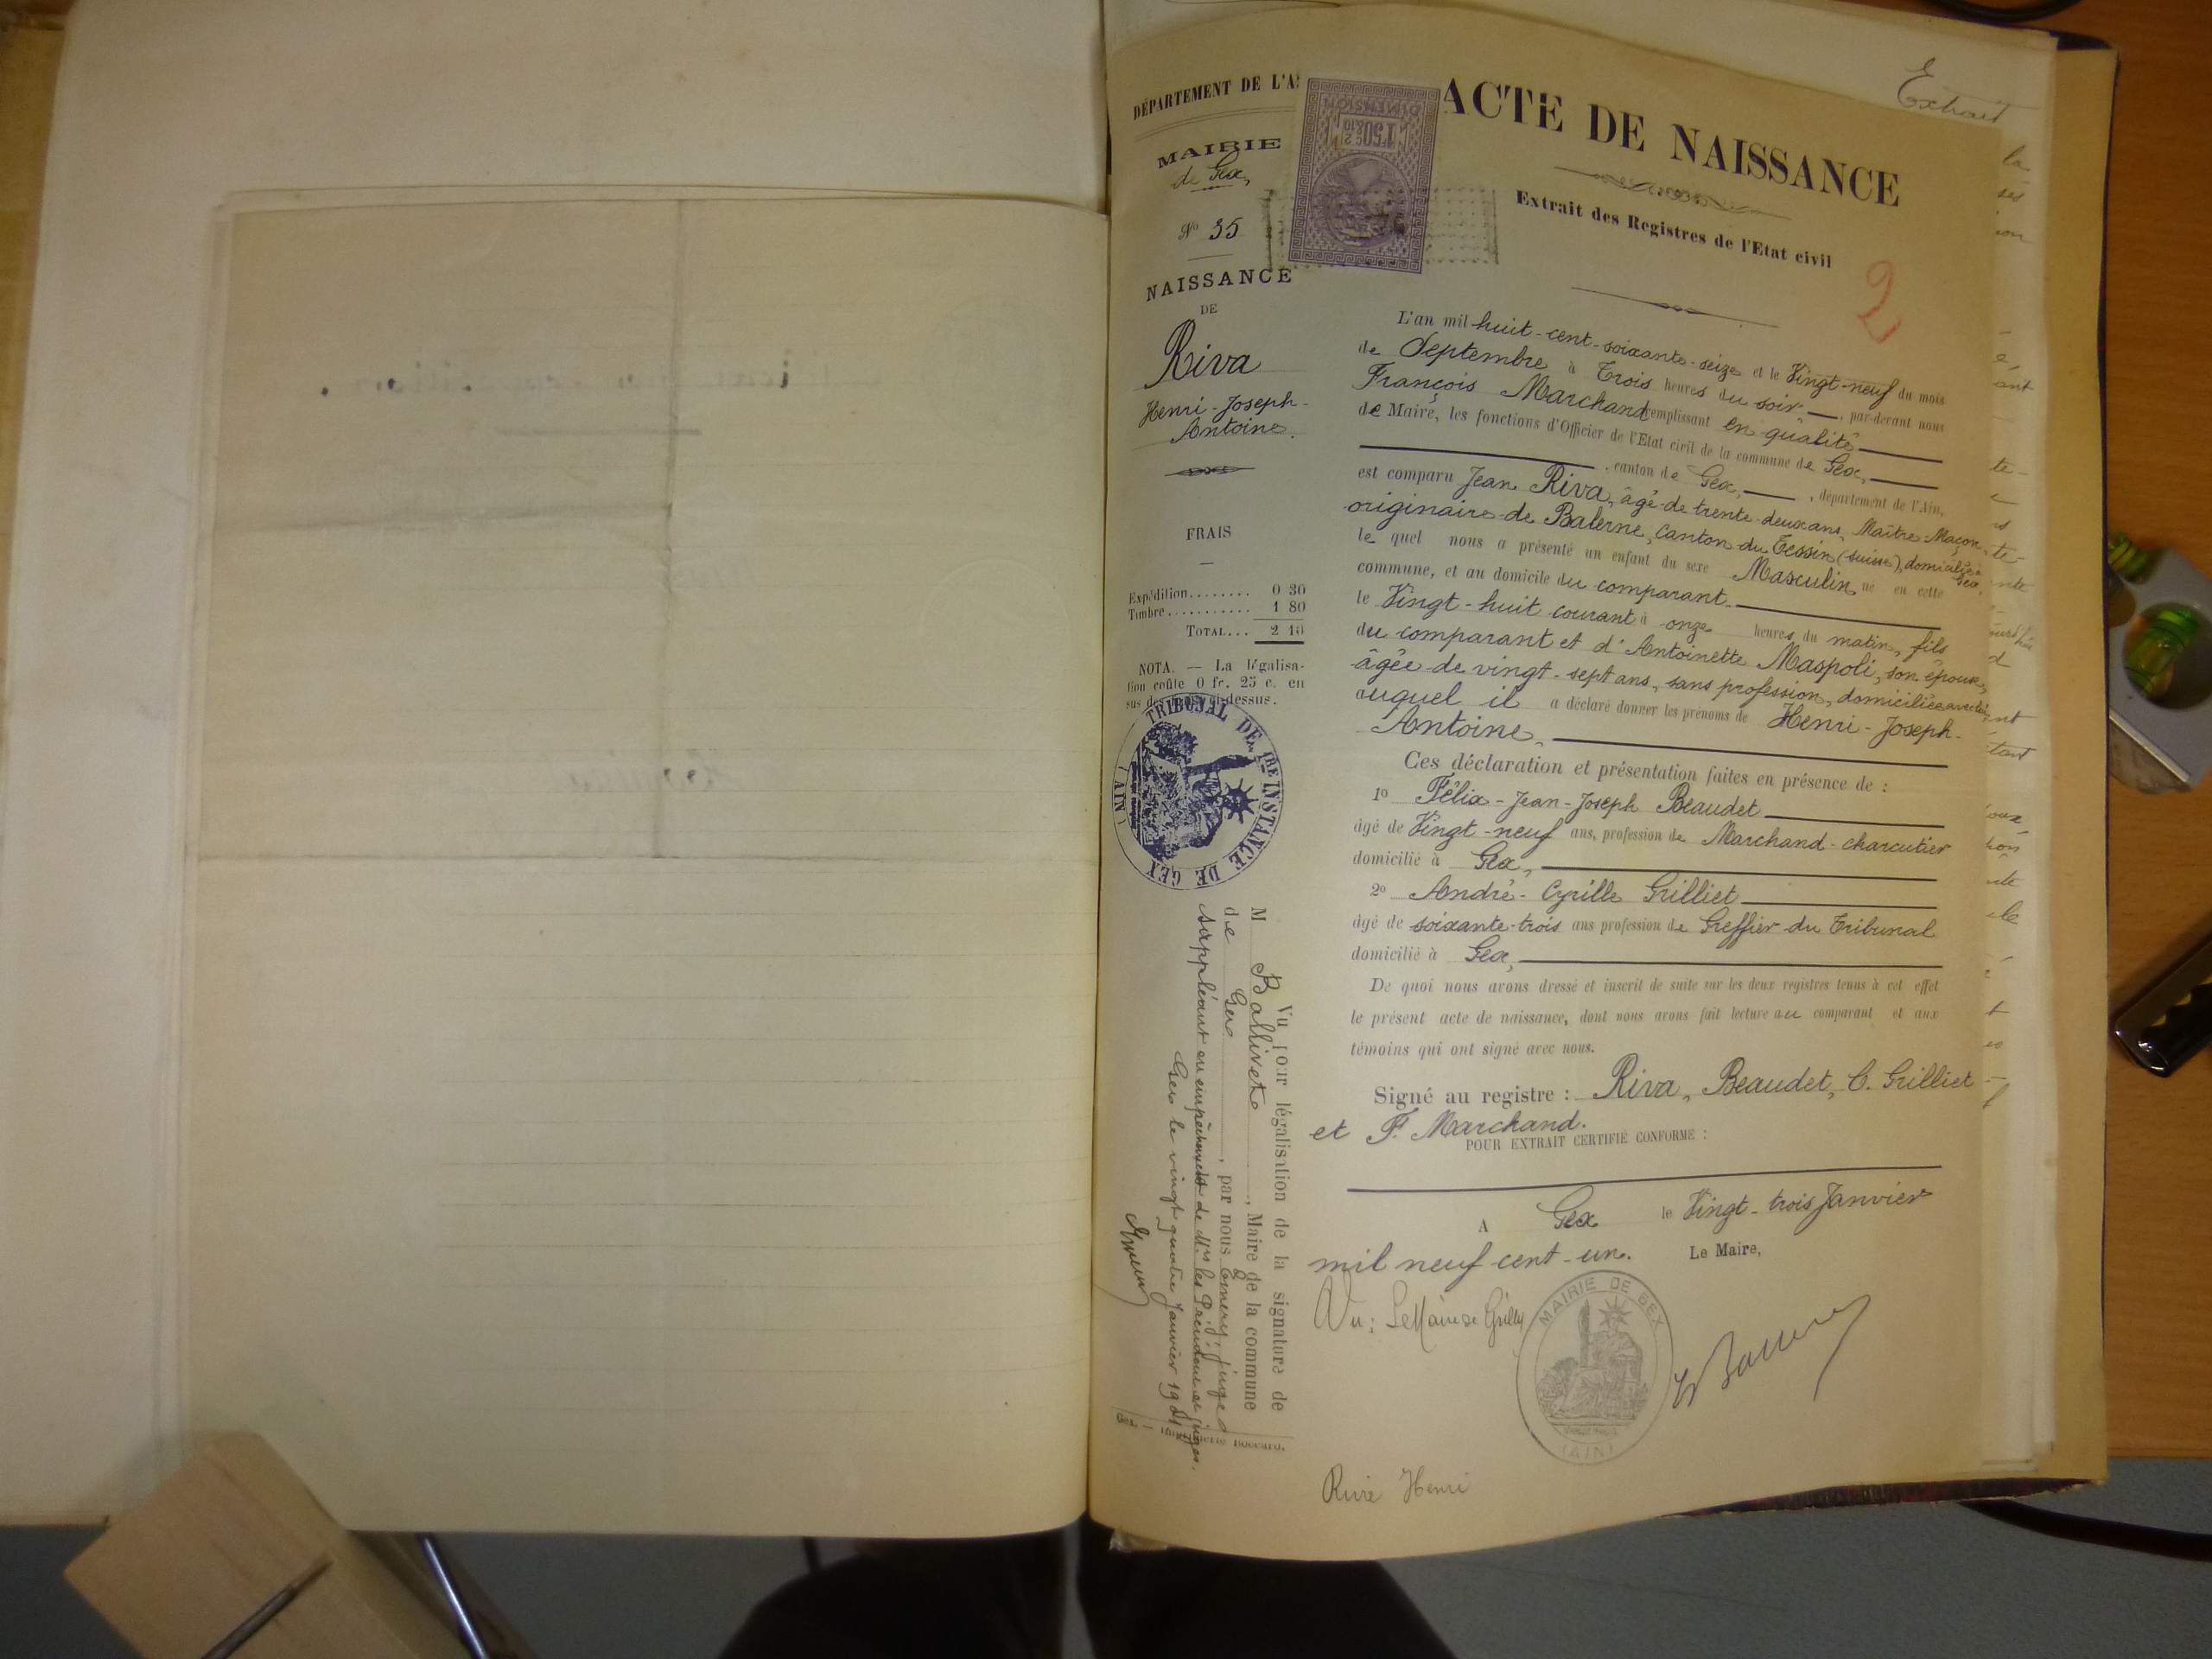 DÉPARTEMENT DE L'A
MAIRIE
de Gex,
No 35
NAISSANCE
DE
Riva
Henri-Joseph-
Antoine.
FRAIS
Expédition........ 0 30
Timbre........... 1 80
TOTAL... 2 10
NOTA. — La légalisa-
tion coûte 0 fr. 25 c. en
sus des ci-dessus.
TRIBUNAL DE 1RE INSTANCE DE GEX
(AIN)
Vu pour légalisation de la signature de
M Ballivet, Maire de la commune
de Gex, par nous Emery, juge
suppléant en empêchement de Mrs les Président et juges.
Gex le vingt quatre Janvier 1901
Emery
Gex. —
DIMENSION
ACTE DE NAISSANCE
Extrait des Registres de l'Etat civil
2
L'an mil huit-cent-soixante-seize et le Vingt-neuf du mois
de Septembre à Trois heures du soir, par-devant nous
François Marchand remplissant en qualité
de Maire, les fonctions d'Officier de l'Etat civil de la commune de Gex,
, canton de Gex, , département de l'Ain,
est comparu Jean Riva, âgé de trente-deux ans, Maître-Maçon,
originaire de Balerne, canton du Tessin (suisse), domicilié à Gex,
le quel nous a présenté un enfant du sexe Masculin né en cette
commune, et au domicile du comparant
le Vingt-huit courant à onze heures du matin, fils
du comparant et d'Antoinette Maspoli, son épouse,
âgée de vingt-sept ans, sans profession, domiciliée avec lui,
auquel il a déclaré donner les prénoms de Henri-Joseph-
Antoine,
Ces déclaration et présentation faites en présence de :
1o Félix-Jean-Joseph Beaudet
âgé de Vingt-neuf ans, profession de Marchand-charcutier
domicilié à Gex,
2o André-Cyrille Grilliet
âgé de soixante-trois ans profession de Greffier du Tribunal
domicilié à Gex,
De quoi nous avons dressé et inscrit de suite sur les deux registres tenus à cet effet
le présent acte de naissance, dont nous avons fait lecture au comparant et aux
témoins qui ont signé avec nous.
Signé au registre : Riva, Beaudet, C. Grilliet
et F. Marchand.
POUR EXTRAIT CERTIFIÉ CONFORME :
A Gex le Vingt-trois Janvier
mil neuf cent-un. Le Maire,
Vu : Le Maire de Grilly
MAIRIE DE GEX
(AIN)
Riva Henri
Extrait